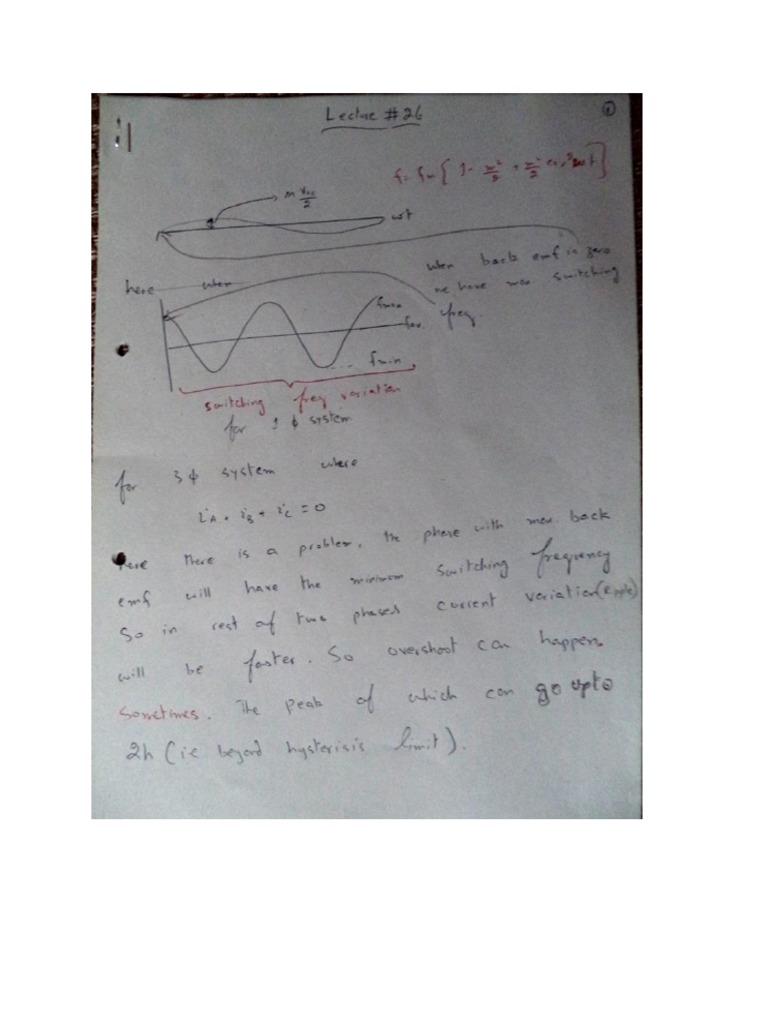 Lecture #26
1
f = fm [ 1 - m²/2 + m²/2 cos 2ωt ]
m Vdc/2
ωt
when back emf is zero
we have max switching
freq.
here when
fmax
fav
fmin
switching freq variation
for 1 ϕ system
for 3 ϕ system where
iA + iB + iC = 0
Here there is a problem, the phase with max. back
emf will have the minimum switching frequency
So in rest of two phases current variation (Ripple)
will be faster. So overshoot can happen
sometimes. The peak of which can go upto
2h (ie beyond hysterisis limit).